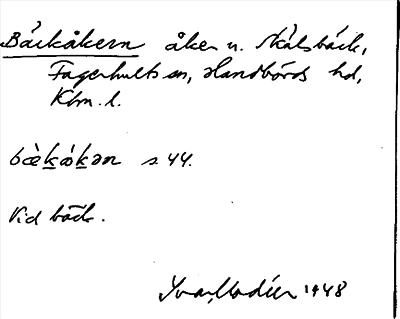 Bäckåkern åker u. Skälsbäck,
Fagerhults sn, Handbörds hd,
Klm. l.
bæ̀kåkən s. 44.
Vid bäck.
Ivar Modéer 1948